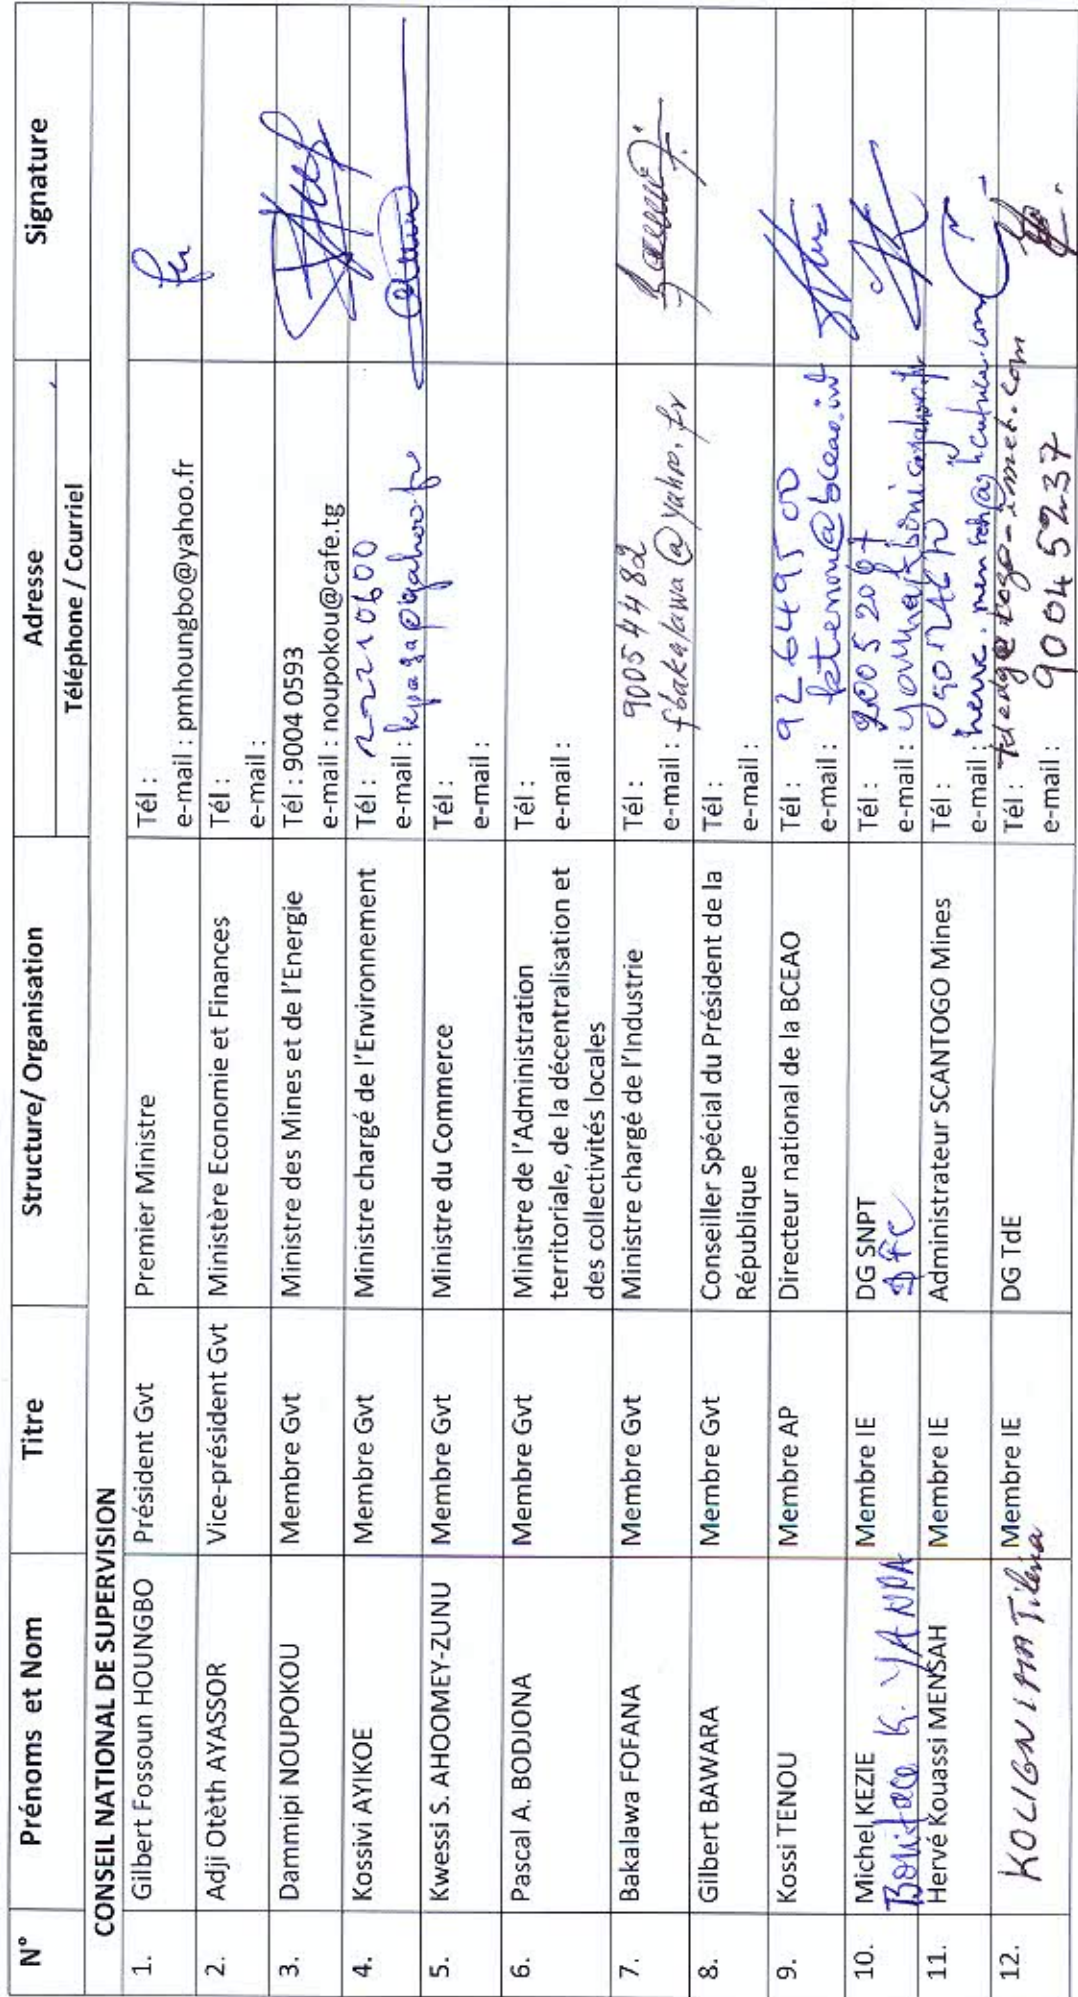 N° Prénoms et Nom Titre Structure/ Organisation Adresse Signature
Téléphone / Courriel
CONSEIL NATIONAL DE SUPERVISION
1. Gilbert Fossoun HOUNGBO Président Gvt Premier Ministre Tél :
e-mail : pmhoungbo@yahoo.fr
2. Adji Otèth AYASSOR Vice-président Gvt Ministère Economie et Finances Tél :
e-mail :
3. Dammipi NOUPOKOU Membre Gvt Ministre des Mines et de l'Energie Tél : 9004 0593
e-mail : noupokou@cafe.tg
4. Kossivi AYIKOE Membre Gvt Ministre chargé de l'Environnement Tél : 22210600
e-mail :
5. Kwessi S. AHOOMEY-ZUNU Membre Gvt Ministre du Commerce Tél :
e-mail :
6. Pascal A. BODJONA Membre Gvt Ministre de l'Administration Tél :
territoriale, de la décentralisation et e-mail :
des collectivités locales
7. Bakalawa FOFANA Membre Gvt Ministre chargé de l'Industrie Tél : 90054482
e-mail : fbakalawa@yahoo.fr
8. Gilbert BAWARA Membre Gvt Conseiller Spécial du Président de la Tél :
République e-mail :
9. Kossi TENOU Membre AP Directeur national de la BCEAO Tél : 92 64 95 00
e-mail : ktenou@bceao.int
10. Michel KEZIE Membre IE DG SNPT Tél :
Boniface K. YANDA DFC e-mail :
11. Hervé Kouassi MENSAH Membre IE Administrateur SCANTOGO Mines Tél :
e-mail :
12. Membre IE DG TdE Tél :
e-mail : 90045237